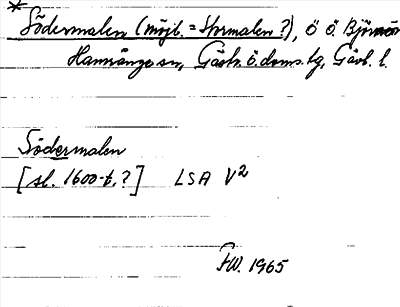 * Södermalen (möjl. = Stormalen ?), Ö Ö. Björnön
Hamrånge sn, Gästr. ö. doms. tg, Gävl. l.
Södermalen
[sl. 1600-t. ?] LSA V2
FW. 1965